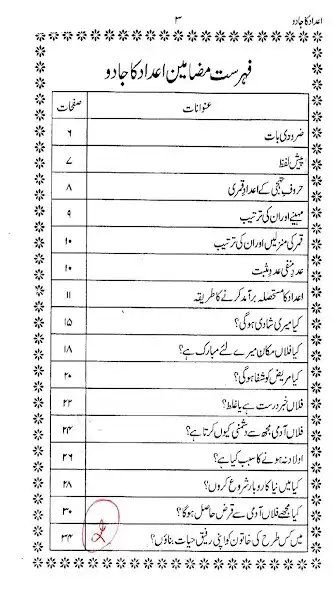 اعداد کا جادو ۳
فہرست مضامین اعداد کا جادو
عنوانات صفحات
ضروری بات ۶
پیش لفظ ۷
حروف تہجی کے اعداد قمری ۸
مہینے اور ان کی ترتیب ۹
قمر کی منزلیں اور ان کی ترتیب ۱۰
عدد منفی عدد مثبت ۱۰
اعداد کا مستحصلہ برآمد کرنے کا طریقہ ۱۱
کیا میری شادی ہوگی؟ ۱۵
کیا فلاں مکان میرے لئے مبارک ہے؟ ۱۸
کیا مریض کو شفا ہوگی؟ ۲۰
فلاں خبر درست ہے یا غلط؟ ۲۲
فلاں آدمی مجھ سے دشمنی کیوں کرتا ہے؟ ۲۴
اولاد نہ ہونے کا سبب کیا ہے؟ ۲۶
کیا میں نیا کاروبار شروع کروں؟ ۲۸
کیا مجھے فلاں آدمی سے قرض حاصل ہوگا؟ ۳۰
میں کس طرح کی خاتون کو اپنی رفیق حیات بناؤں؟ ۳۴